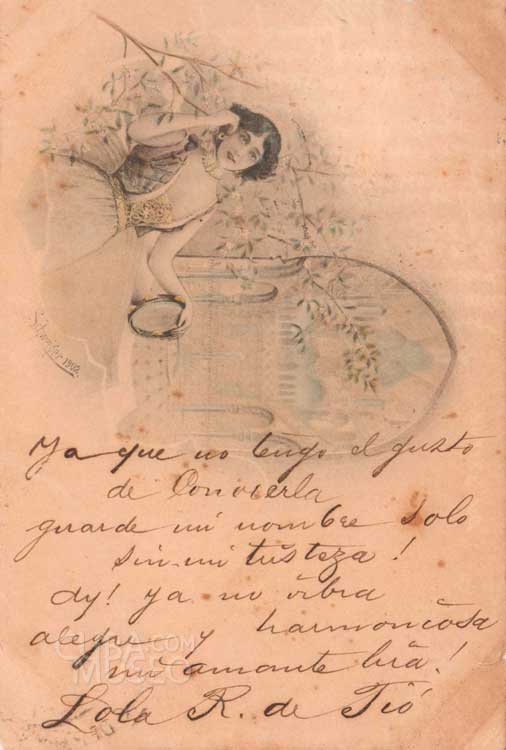 Schneider 1902.
Ya que no tengo el gusto
de Conocerla
guarde mi nombre solo
sin mi tristeza!
Ay! ya no vibra
alegre y harmoniosa
mi amante lira!
Lola R. de Tió
CUBA
.COM